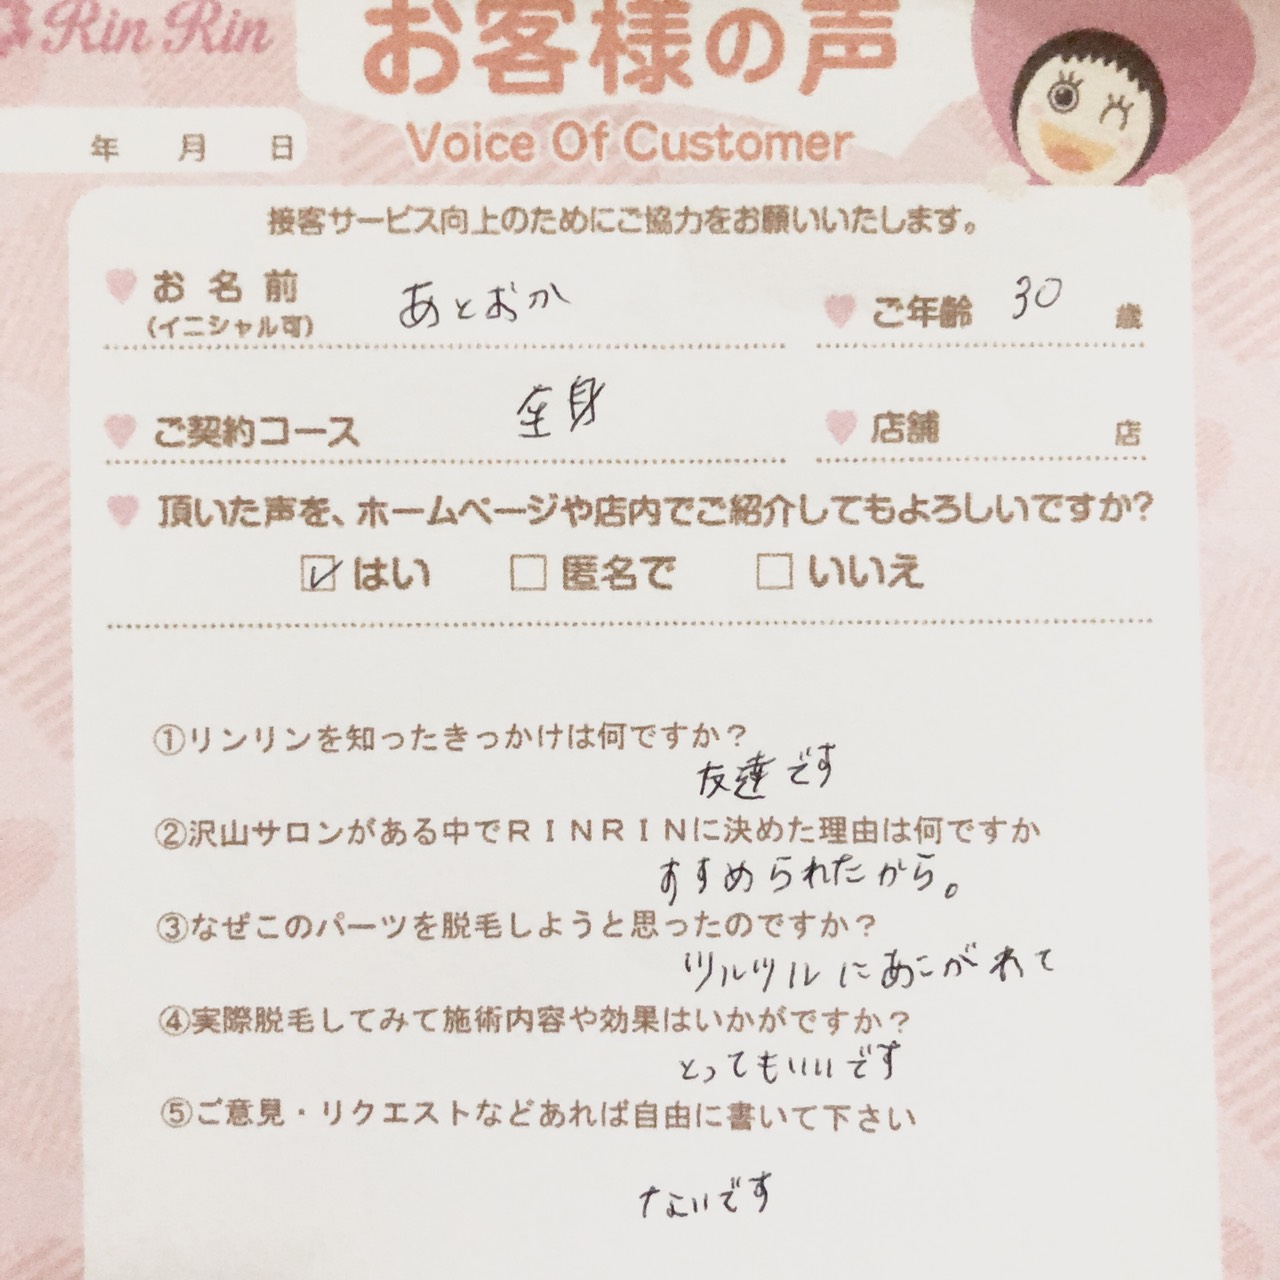 Rin Rin
お客様の声
Voice Of Customer
年 月 日
接客サービス向上のためにご協力をお願いいたします。
お名前 あとおか ご年齢 30 歳
(イニシャル可)
ご契約コース 全身 店舗 店
頂いた声を、ホームページや店内でご紹介してもよろしいですか?
はい 匿名で いいえ
①リンリンを知ったきっかけは何ですか?
友達です
②沢山サロンがある中でRINRINに決めた理由は何ですか
すすめられたから。
③なぜこのパーツを脱毛しようと思ったのですか?
ツルツルにあこがれて
④実際脱毛してみて施術内容や効果はいかがですか?
とってもいいです
⑤ご意見・リクエストなどあれば自由に書いて下さい
ないです